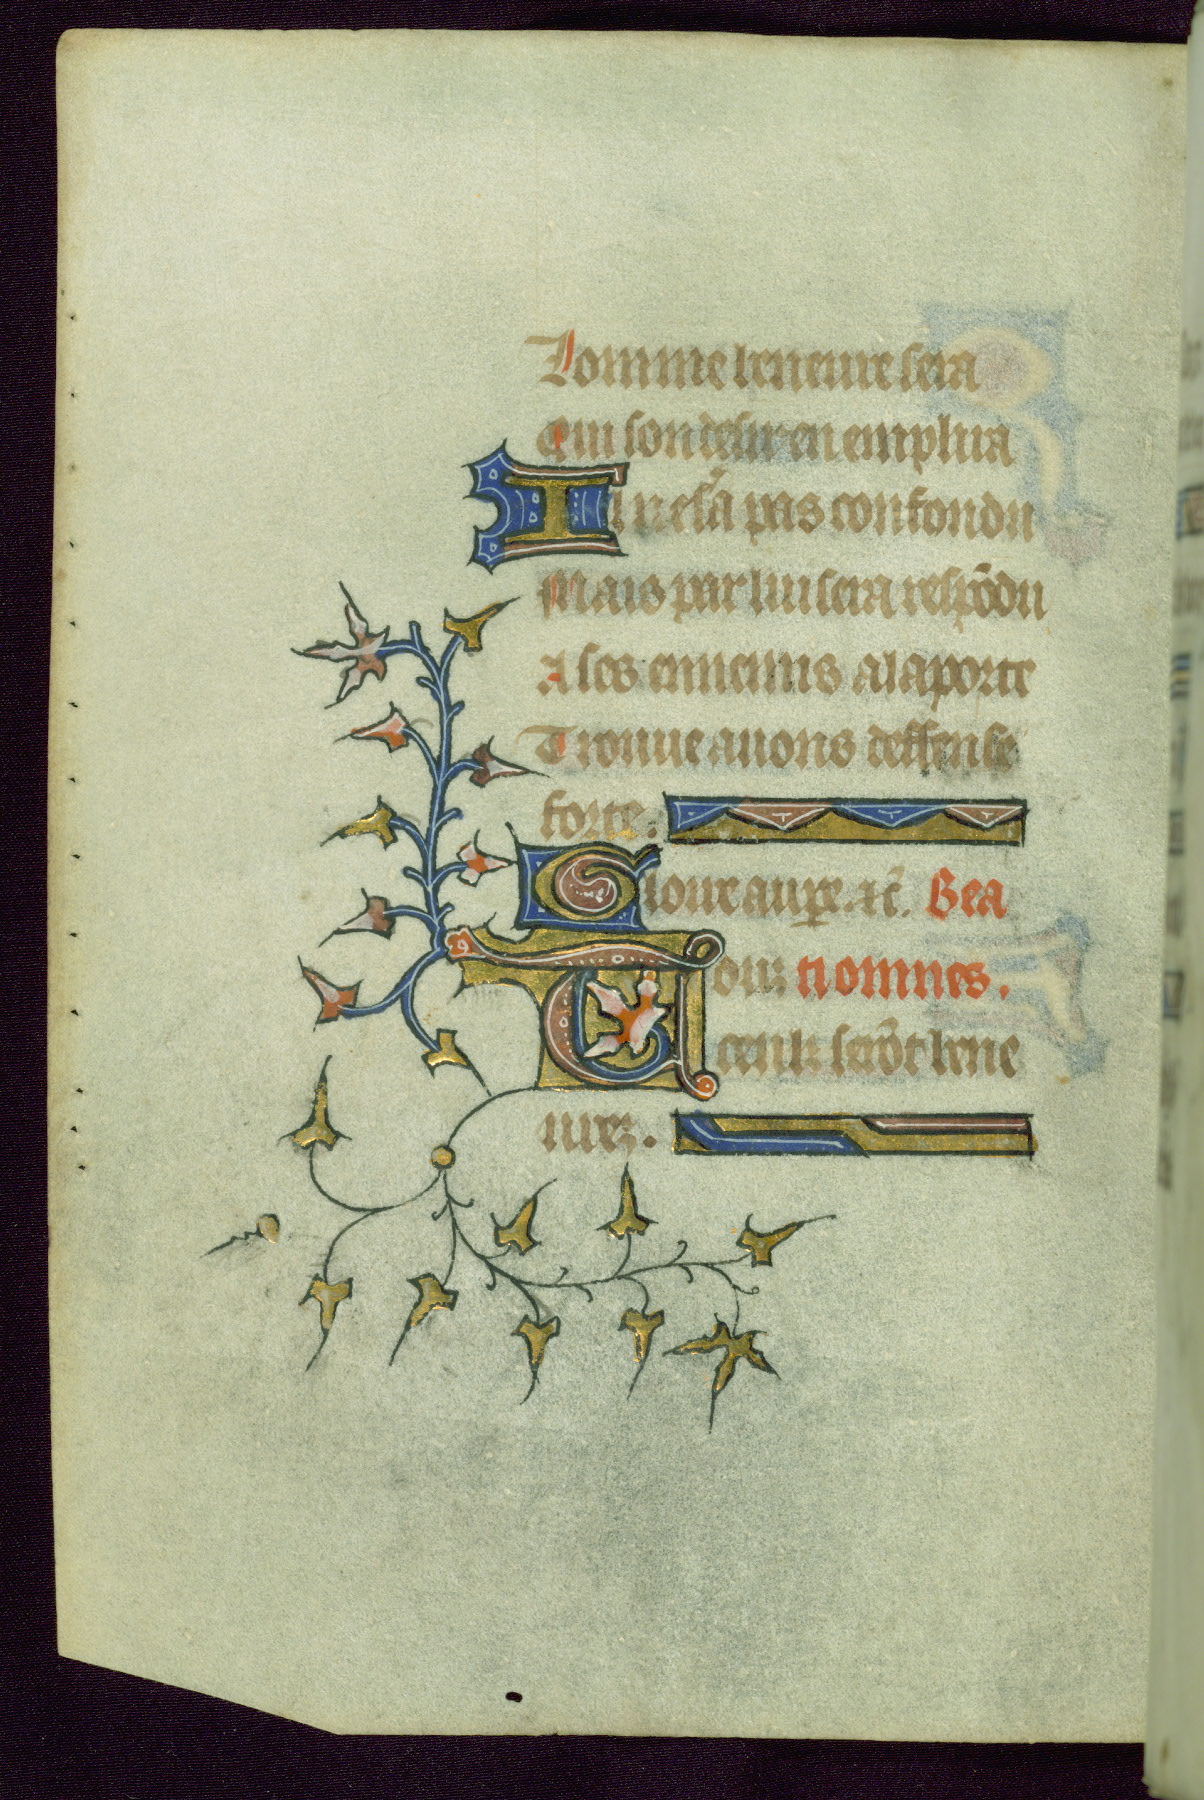 Lomme beneure sera
Qui son desir en emplira
Il ne sa pas confondu
Mais par lui sera respōdu
A ses ennemis a la porte
Trouue auons deffense
forte.
Gloire au pe. ⁊c̄. Bea
Touz ti omnes.
ceulz serōt bene
urez.